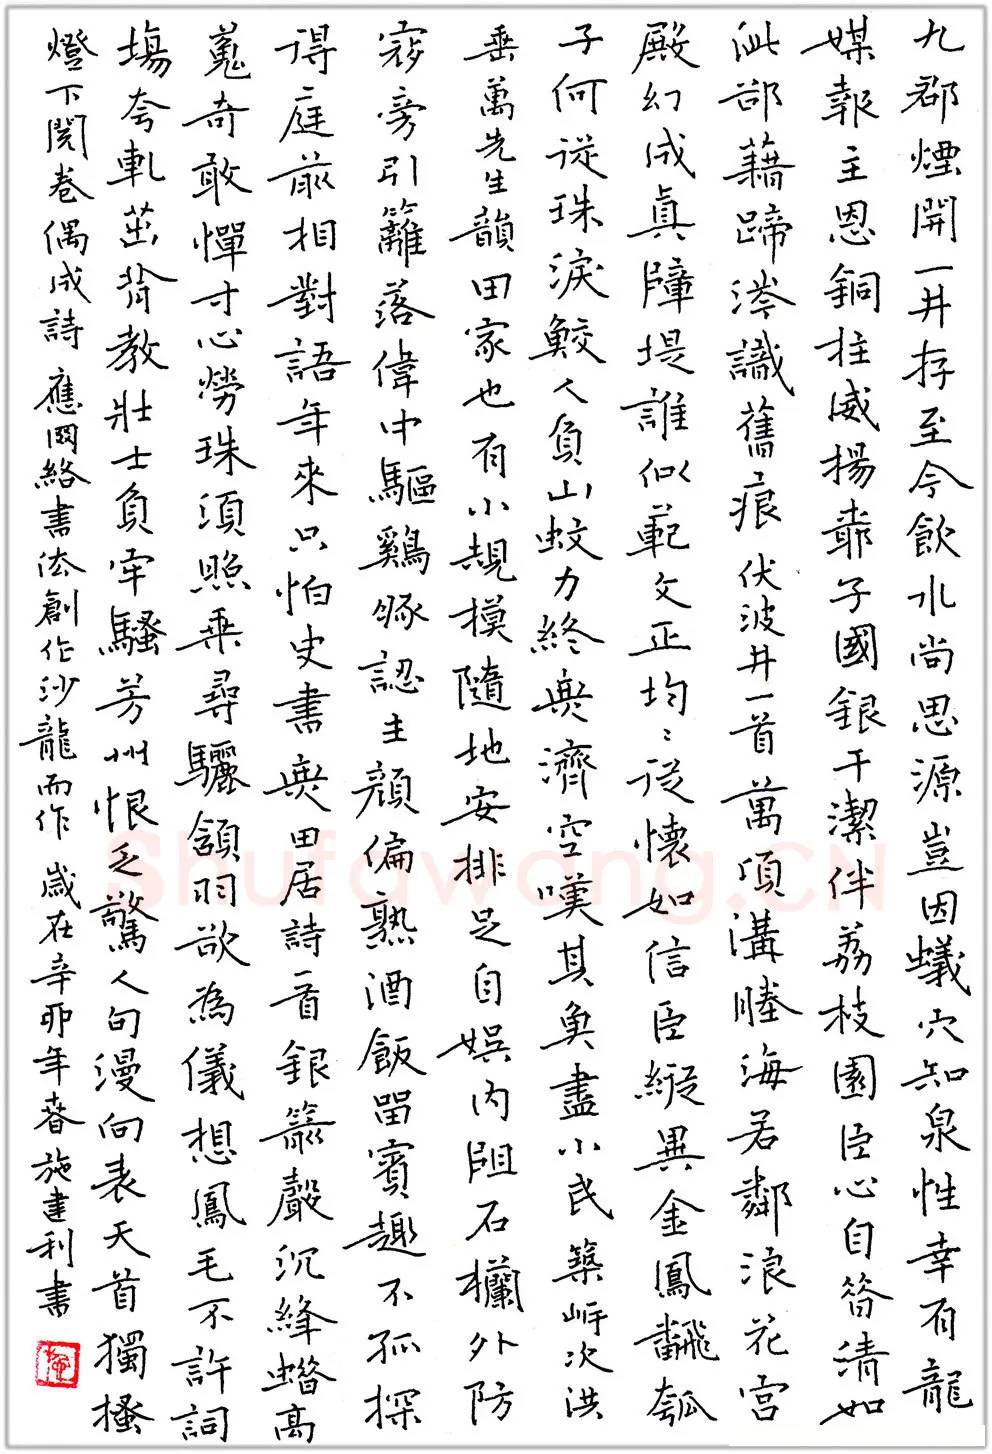 九郡煙開一井存至今飲水尚思源豈因蟻穴知泉性幸有龍
媒報主恩銅柱威揚子國銀干潔伴荔枝園臣心自清如
泚部藉蹄涔識舊痕 伏波井一首 萬頃溝塍海若鄰浪花宮
殿幻成真障堤誰似範文正均々從懷如信臣縱異金鳳翻飛瓠
子何從珠淚鮫人負山蚊力終無濟空嘆其魚盡小民 築岍次洪
垂萬先生韻 田家也有小規模隨地安排足自娛內阻石欄外防
旁引籬落偉中驅鷄豚認主顏偏熟酒飯留賓趣不孤探
得庭前相對語年來只怕史書無 田居詩一首 銀箭聲沉絳蠟高
蒐奇敢憚寸心勞珠須照乘尋驪頷羽欲為儀想鳳毛不許詞
場夸軋茁肯教壯士負牢騷芳州恨乏驚人句漫向表天首獨搔
燈下閱卷偶成詩 應网絡書法創作沙龍而作 歲在辛卯年春施建利書
Shufawang.CN